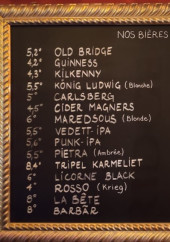 NOS BIÈRES
5,2° OLD BRIDGE
4,2° GUINNESS
4,3° KILKENNY
5,5° KÖNIG LUDWIG (Blanche)
5° CARLSBERG
4,5° CIDER MAGNERS
6° MAREDSOUS (Blonde)
5,5° VEDETT-IPA
5,6° PUNK-IPA
5,5° PIETRA (Ambrée)
8,4° TRIPEL KARMELIET
6° LICORNE BLACK
4° ROSSO (Krieg)
8° LA BÊTE
8° BARBÄR